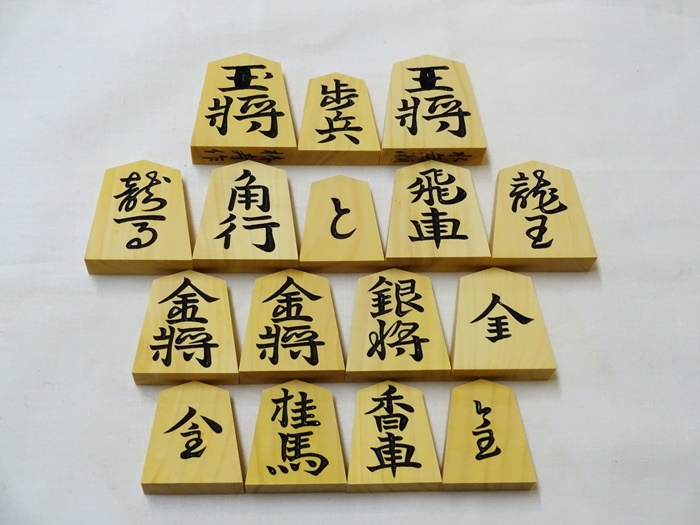 玉將 歩兵 王將
龍馬 角行 と 飛車 龍王
金將 金將 銀將 全
桂馬 香車